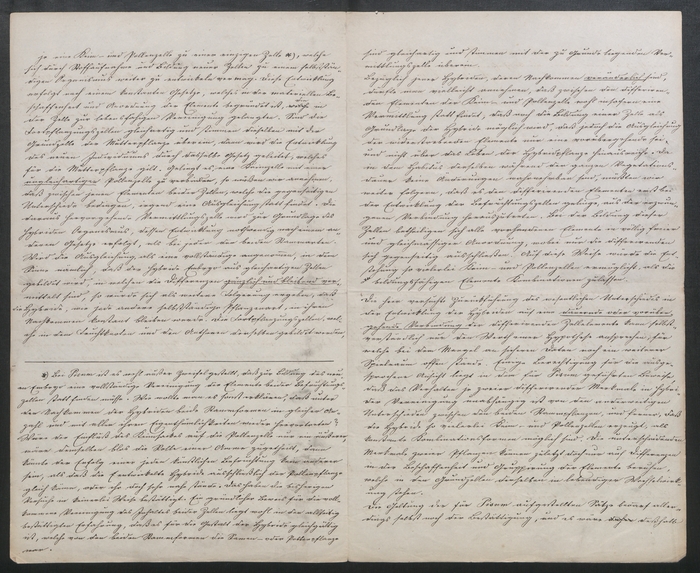 je eine Keim- und Pollenzelle zu einer einzigen Zelle *), welche
sich durch Stoffaufnahme und Bildung neuer Zellen zu einem selbststän-
digen Organismus weiter zu entwickeln vermag. Diese Entwicklung
erfolgt nach einem constanten Gesetze, welches in der materiellen Be-
schaffenheit und Anordnung der Elemente begründet ist, welche in
der Zelle zur lebensfähigen Vereinigung gelangten. Sind die
Fortpflanzungszellen gleichartig und stimmen dieselben mit der
Grundzelle der Mutterpflanze überein, dann wird die Entwicklung
des neuen Individuums durch dasselbe Gesetz geleitet, welches
für die Mutterpflanze gilt. Gelingt es, eine Keimzelle mit einer
ungleichartigen Pollenzelle zu verbinden, so müssen wir annehmen,
daß zwischen jenen Elementen beider Zellen, welche die gegenseitigen
Unterschiede bedingen, irgend eine Ausgleichung statt findet. Die
daraus hervorgehende Vermittlungszelle wird zur Grundlage des
Hybriden Organismus, dessen Entwicklung nothwendig nach einem an-
deren Gesetze erfolgt, als bei jeder der beiden Stammarten.
Wird die Ausgleichung als eine vollständige angenommen, in dem
Sinne nämlich, daß der hybride Embryo aus gleichartigen Zellen
gebildet wird, in welchen die Differenzen gänzlich und bleibend ver-
mittelt sind, so würde sich als weitere Folgerung ergeben, daß
die Hybride, wie jede andere selbstständige Pflanzenart, in ihren
Nachkommen konstant bleiben werde. Die Fortpflanzungszellen, wel-
che in dem Fruchtknoten und den Antheren derselben gebildet werden,
*) Bei Pisum ist es wohl außer Zweifel gestellt, daß zur Bildung des neu-
en Embryo eine vollständige Vereinigung der Elemente beider Befruchtungs-
zellen statt finden müsse. Wie wollte man es sonst erklären, daß unter
den Nachkommen der Hybriden beide Stammformen in gleicher An-
zahl und mit allen ihren Eigenthümlichkeiten wieder hervortreten?
Wäre der Einfluß des Keimsackes auf die Pollenzelle nur ein äußerer,
wäre demselben bloß die Rolle einer Amme zugetheilt, dann
könnte der Erfolg einer jeden künstlichen Befruchtung kein anderer
sein, als daß die entwickelte Hybride ausschließlich der Pollenpflanze
gleich käme, oder ihr doch sehr nahe stände. Das haben die bisherigen
Versuche in keinerlei Weise bestättiget. Ein gründlicher Beweis für die voll-
kommene Vereinigung des Inhaltes beider Zellen liegt wohl in der allseitig
bestättigten Erfahrung, daß es für die Gestalt der Hybride gleichgültig
ist, welche von den beiden Stammformen die Samen- oder Pollenpflanze
war.
sind gleichartig und stimmen mit der zu Grunde liegenden Ver-
mittlungszelle überein.
Bezüglich jener Hybriden, deren Nachkommen veränderlich sind,
dürfte man vielleicht annehmen, daß zwischen den differiren-
den Elementen der Keim- und Pollenzelle wohl insofern eine
Vermittlung statt findet, daß noch die Bildung einer Zelle als
Grundlage der Hybride möglich wird, daß jedoch die Ausgleichung
der widerstrebenden Elemente nur eine vorübergehende sei,
und nicht über das Leben der Hybridpflanze hinausreiche. Da
in dem Habitus derselben während der ganzen Vegetations-
dauer keine Änderungen wahrnehmbar sind, müßten wir
weiter folgern, daß es den differirenden Elementen erst bei
der Entwicklung der Befruchtungszellen gelinge, aus der erzwun-
genen Verbindung herauszutreten. Bei der Bildung dieser
Zellen betheiligen sich alle vorhandenen Elemente in völlig freier
und gleichmäßiger Anordnung, wobei nur die differirenden
sich gegenseitig ausschließen. Auf diese Weise würde die Ent-
stehung so vielerlei Keim- und Pollenzellen ermöglicht, als die
bildungsfähigen Elemente Kombinationen zulassen.
Die hier versuchte Zurückführung des wesentlichen Unterschiedes in
der Entwicklung der Hybriden auf eine dauernde oder vorüber-
gehende Verbindung der differirenden Zellelemente kann selbst-
verständlich nur den Werth einer Hypothese ansprechen, für
welche bei dem Mangel an sicheren Daten noch ein weiterer
Spielraum offen stünde. Einige Berechtigung für die ausge-
sprochene Ansicht liegt in dem für Pisum geführten Beweise,
daß das Verhalten je zweier differirender Merkmale in hybri-
der Vereinigung unabhängig ist von den anderweitigen
Unterschieden zwischen den beiden Stammpflanzen, und ferner, daß
die Hybride so vielerlei Keim- und Pollenzellen erzeugt, als
constante Kombinationsformen möglich sind. Die unterscheidenden
Merkmale zweier Pflanzen können zuletzt doch nur auf Differenzen
in der Beschaffenheit und Gruppirung der Elemente beruhen,
welche in den Grundzellen derselben in lebendiger Wechselwirk-
ung stehen.
Die Geltung der für Pisum aufgestellten Sätze bedarf aller-
dings selbst noch der Bestättigung, und es wäre deshalb